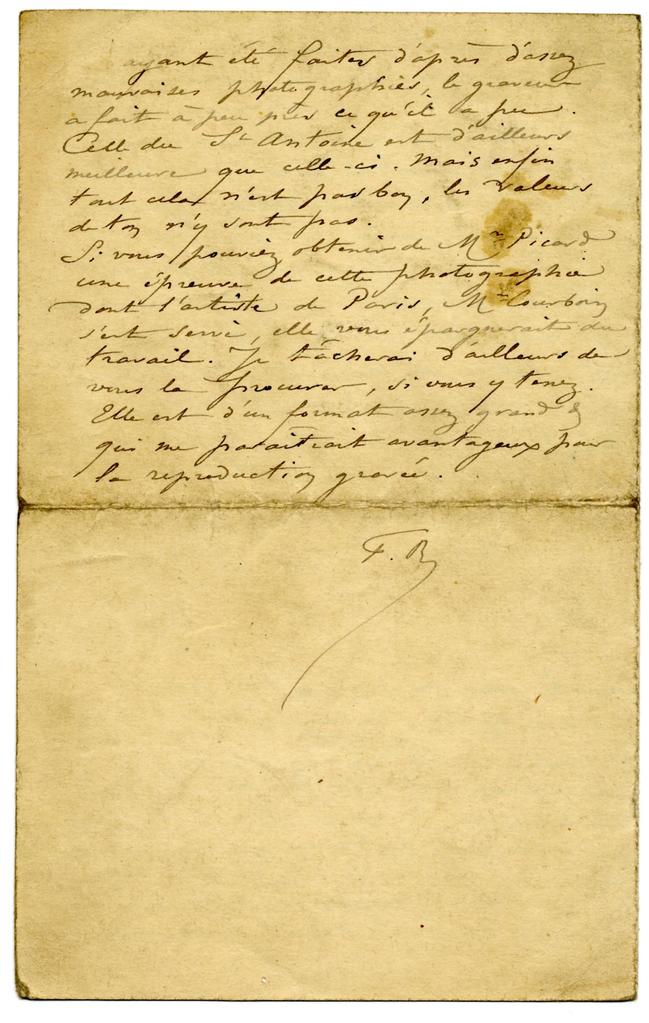 ayant été faites d'après d'assez
mauvaises photographies, le graveur
a fait à peu près ce qu'il a pu.
Celle du St Antoine est d'ailleurs
meilleure que celle-ci. Mais enfin
tout cela n'est pas bon, les valeurs
de ton n'y sont pas.
Si vous pouviez obtenir de Mr Picard
une épreuve de cette photographie
dont l'artiste de Paris, Mr Courboin
s'est servi, elle vous épargnerait du
travail. Je tâcherai d'ailleurs de
vous la procurer, si vous y tenez.
Elle est d'un format assez grand &
qui me paraîtrait avantageux pour
la reproduction gravée.
F. R